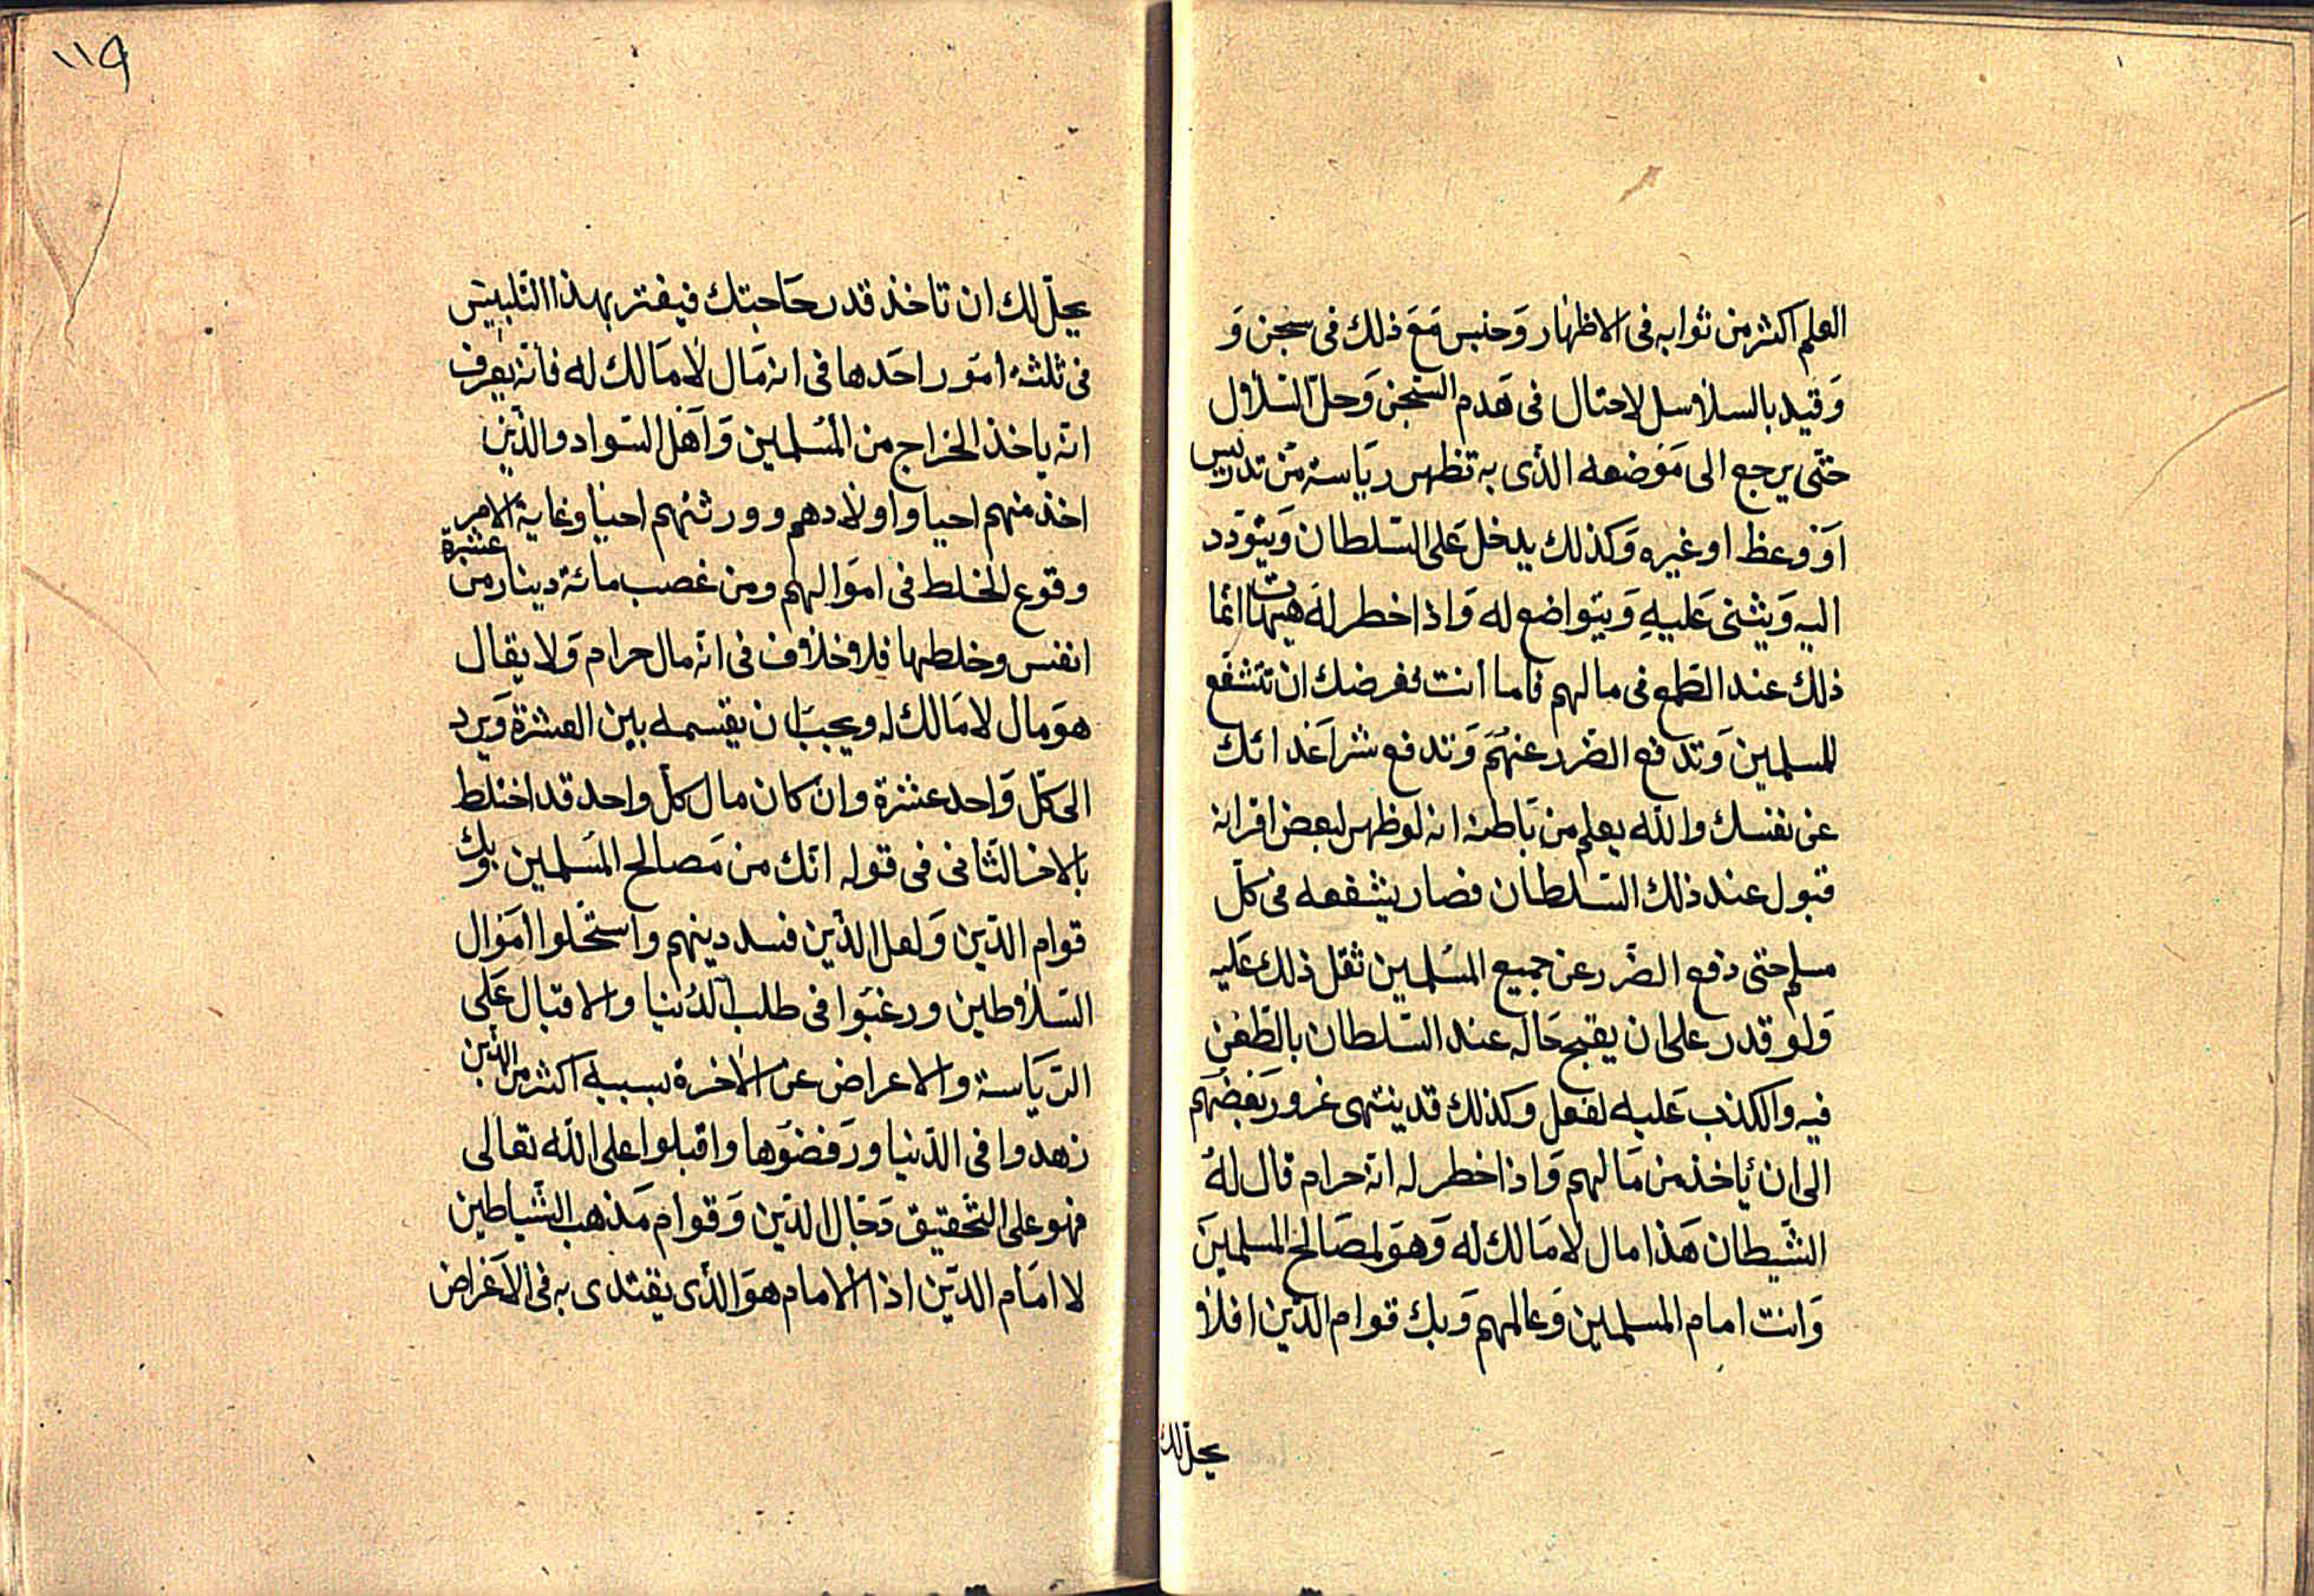 العلم اكثر من ثوابه فى الاظهار وَحبس مَعَ ذلك فى سجن وَ
وَقيد بالسلاسل لاحتال فى هَدم السّجن وَحلّ السّلاسل
حتّى يرجع الى مَوضعه الذى به تظهر ريَاسته من تدريس
اَوْ وعظ او غيره وَكذلك يدخل عَلى السّلطان وَيتوَدد
اليه وَيثنى عَليهِ وَيتواضع له وَاذا خطر له هيهات انّما
ذلك عند الطّمع فى مالهم فاما انت فغرضك ان تتشفّع
للمسلمين وَتدفع الضّرر عنهُم وَتدفع شر اَعدائك
عن نفسك والله يعلم من بَاطنه انه لو ظهر لبعض اقرانه
قبول عند ذلك السّلطان فصار يشفعه فى كلّ
مسلم حتى دفع الضّرر عن جميع المسُلمين ثقل ذلك عَليه
وَلو قدر على ان يقبح حَاله عند السّلطان بالطّعن
فيه والكذب عَليه لفعل وكذلك قد ينتهى غرور بَعضهَم
الى ان يأخذ من مَالهم وَاذا خطر له انه حرام قال لهُ
الشّيطان هَذا مال لا مَالك له وَهوَ لمصَالح المسلمينَ
وَانت امام المسلمين وَعالمهم وَبك قوام الدّين افلا
يحلّ لك
١١٩
يحلّ لك ان تاخذ قدر حَاجتك فيغتر بهذا التّلبيس
فى ثلثة امَور احَدها فى انه مَال لا مَالك له فانّه يعرف
انّه ياخذ الخراج من المُسْلمين وَاَهْل السّواد والذّين
اخذ منهم احيا واولادهم وورثتهم احيا وغاية الامر
وقوع الخلط فى اموَالهم ومن غصب مائة دينار من عشرة
انفس وخلطها فلا خلاف فى انه مال حرام وَلا يقال
هوَ مال لا مَالك له ويجب ان يقسمه بين العشرة وَيرد
الى كلّ وَاحد عشرة وان كان مال كلّ واحد قد اختلط
بالاخر الثّانى فى قوله انّك من مَصالح المسُلمين وبك
قوام الدّين وَلعل الذّين فسد دينهم واستحْلوا امَوال
السّلاطين ورغبَوا فى طلب الدُنيا والاقبال عَلى
الرّيَاسة والاعراض عن الاخرة بسببه اكثر من الذين
زهدوا فى الدّنيا ورَفضوَها واقبلوا على الله تعالى
فهو على التّحقيق دَجّال الدّين وَقوام مَذهب الشّياطين
لا امَام الدّين اذ الامام هوَ الذى يقتدى به فى الاَعْراض